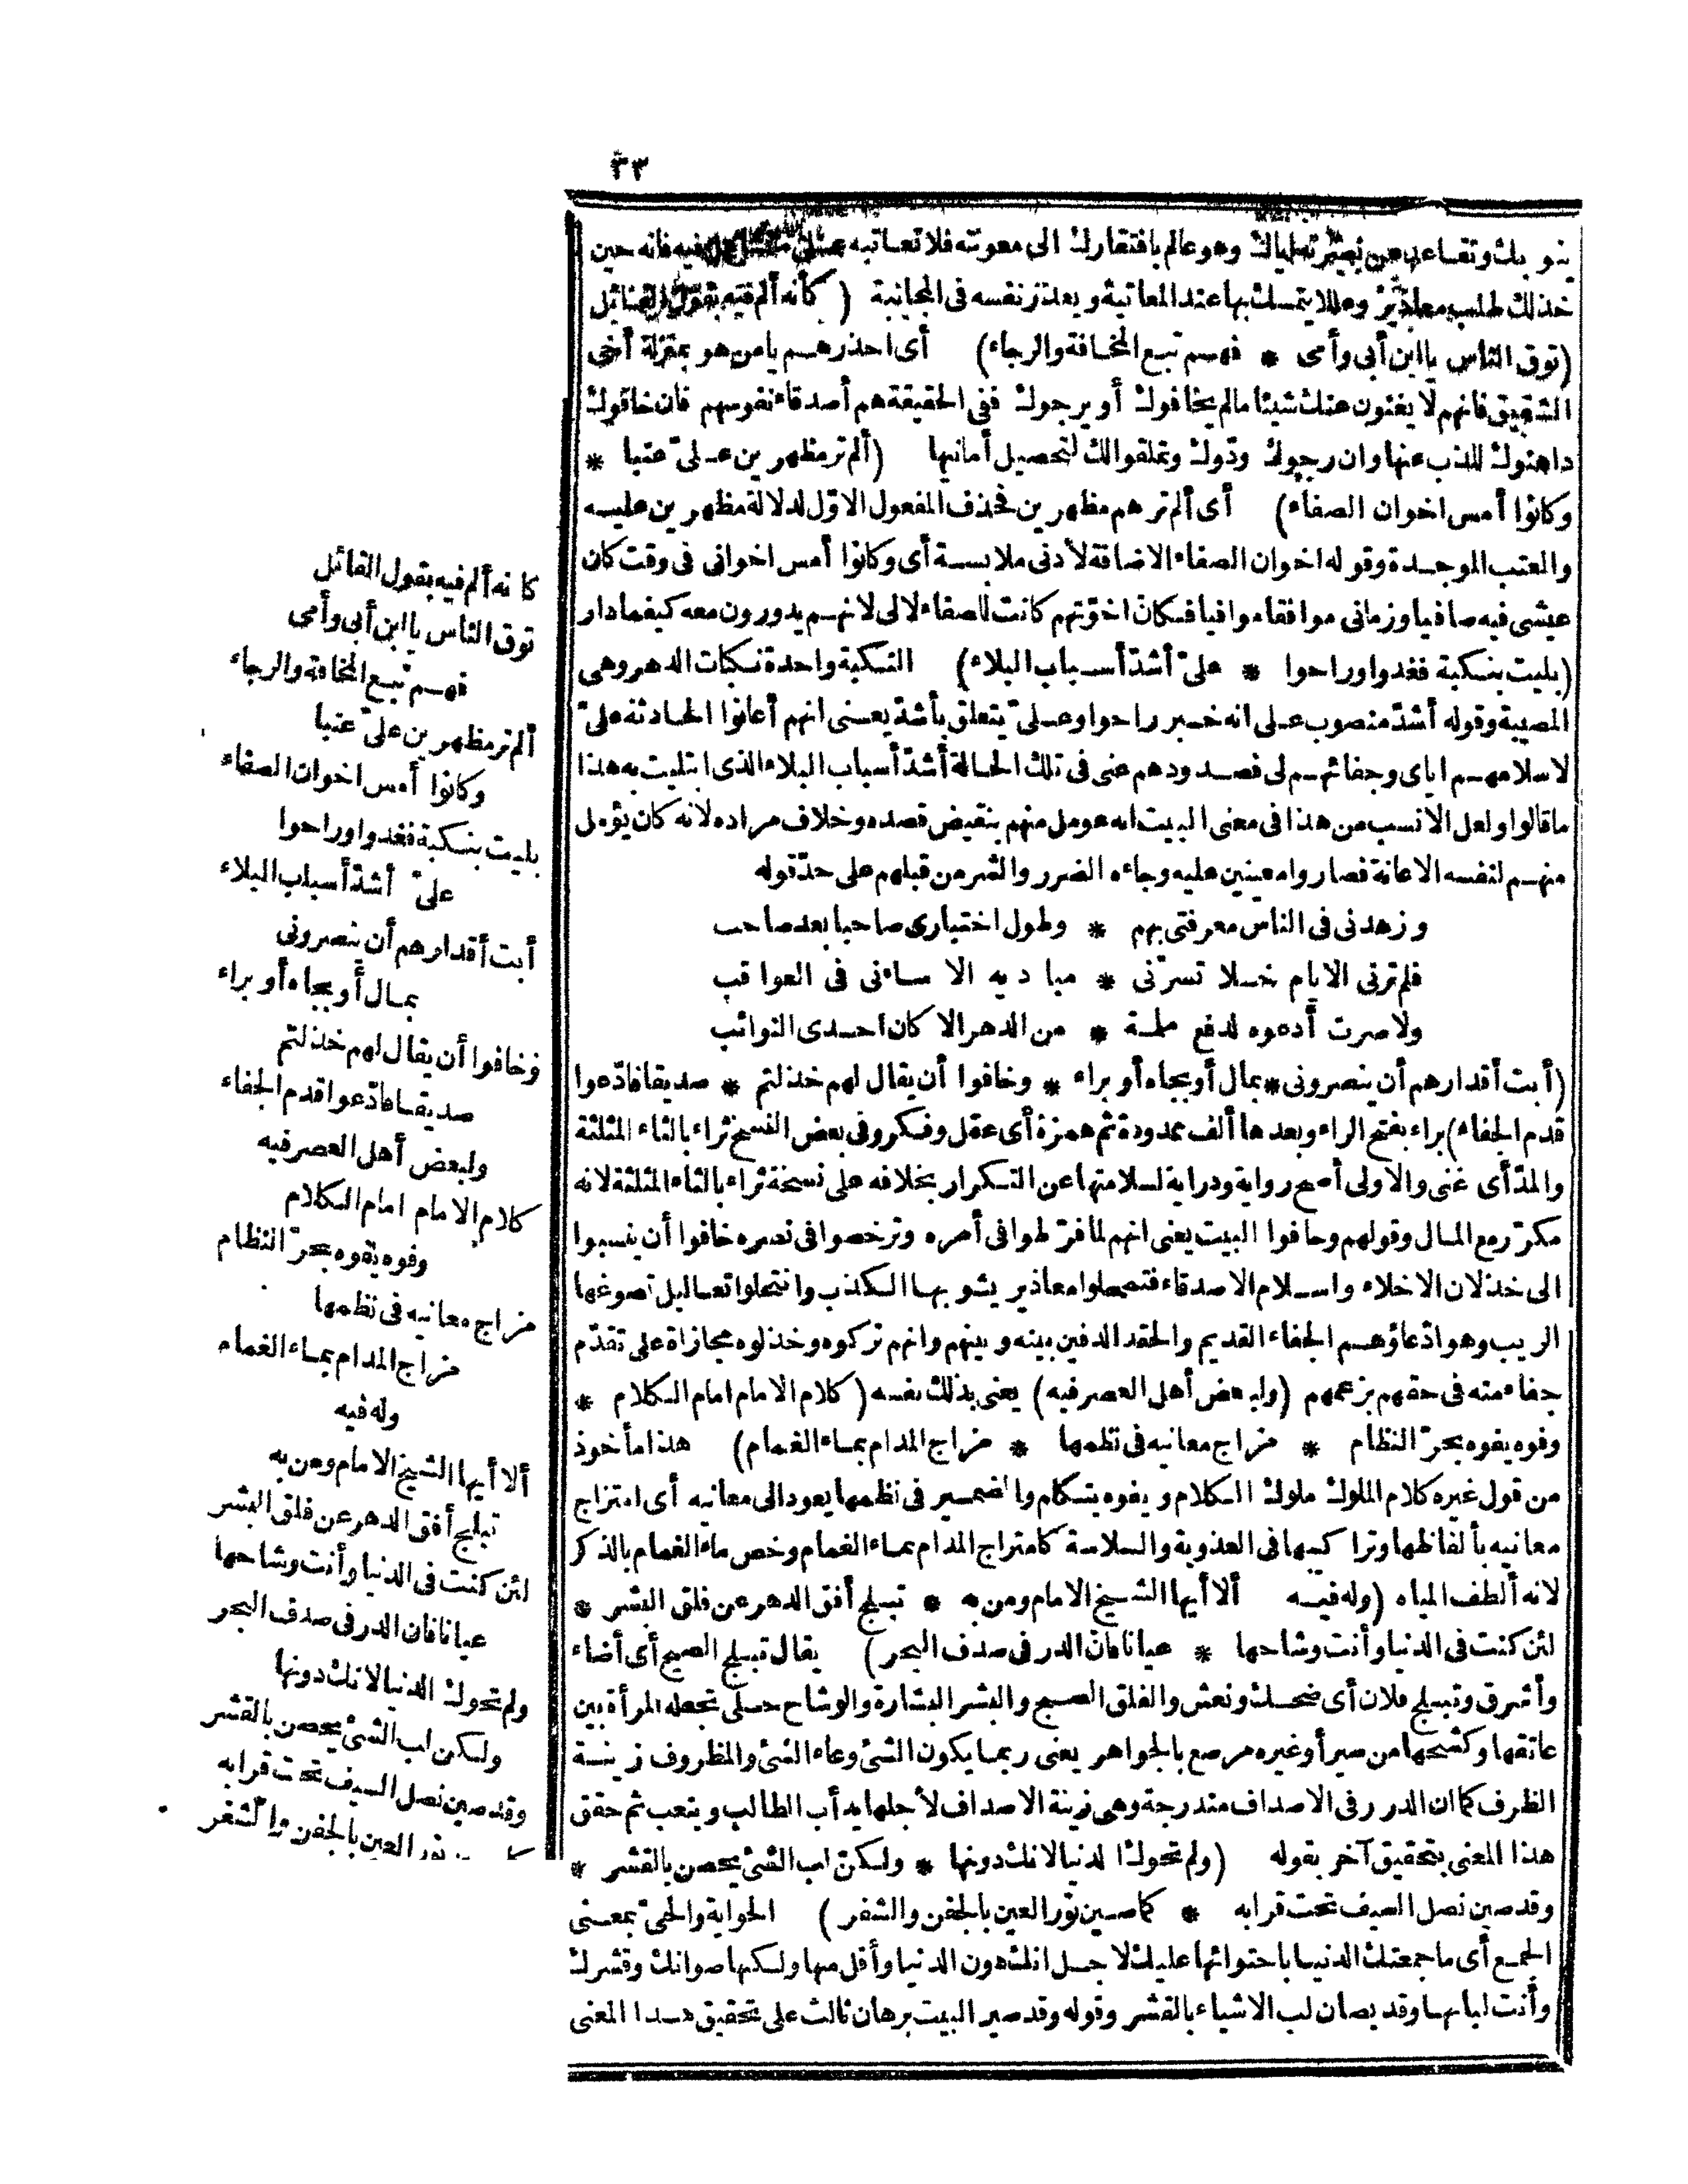 ٣٣
ينوبك وتقاعد عن نصرته اياك وهو عالم بافتقارك الى معونته فلا تعاتبه فيه فانه حين
خذلك طلب معاذير وعللا يتمسك بها عند المعاتبة ويعذر نفسه فى المجانبة (كأنه ألم فيه بقول القائل
(توق الناس يا ابن أبى وأمى * فهم تبع المخافة والرجاء) أى احذرهم يا من هو بمنزلة أخى
الشقيق فانهم لا يغنون عنك شيئا ما لم يخافوك أو يرجوك ففى الحقيقة هم أصدقاء نفوسهم فان خافوك
داهنوك للذب عنها وان رجوك ودّوك وتملقوا لك لتحصيل أمانيها (ألم تر مظهرين علىّ عتبا *
وكانوا أمس اخوان الصفاء) أى ألم ترهم مظهرين فحذف المفعول الاوّل لدلالة مظهرين عليه
والعتب الموجدة وقوله اخوان الصفاء الاضافة لأدنى ملابسة أى وكانوا أمس اخوانى فى وقت كان
عيشى فيه صافيا وزمانى موافقا موافيا فكان اخوّتهم كانت للصفاء لا لى لانهم يدورون معه كيفما دار
(بليت بنكبة فغدوا وراحوا * علىّ أشدّ أسباب البلاء) النكبة واحدة نكبات الدهر وهى
المصيبة وقوله أشدّ منصوب على انه خبر راحوا وعلىّ يتعلق بأشدّ يعنى انهم أعانوا الحادثة علىّ
لاسلامهم اياى وجفائهم لى فصدودهم عنى فى تلك الحالة أشدّ أسباب البلاء الذى ابتليت به هذا
ما قالوا ولعل الانسب من هذا فى معنى البيت انه عومل منهم بنقيض قصده وخلاف مراده لانه كان يؤمل
منهم لنفسه الاعانة فصاروا معينين عليه وجاءه الضرر والشر من قبلهم على حدّ قوله
وزهدنى فى الناس معرفتى بهم * وطول اختيارى صاحبا بعد صاحب
فلم ترنى الايام خلا تسرّنى * مباديه الا ساءنى فى العواقب
ولا صرت أدعوه لدفع ملمة * من الدهر الا كان احدى النوائب
(أبت أقدارهم أن ينصرونى * بمال أو بجاه أو براء * وخافوا أن يقال لهم خذلتم * صديقا فادّعوا
قدم الجفاء) براء بفتح الراء وبعدها ألف ممدودة ثم همزة أى عقل وفكر وفى بعض النسخ ثراء بالثاء المثلثة
والمدّ أى غنى والاولى أصح رواية ودراية لسلامتها عن التكرار بخلافه على نسخة ثراء بالثاء المثلثة لانه
مكرّر مع المال وقولهم وخافوا البيت يعنى انهم لما فرّطوا فى أمره وترخصوا فى نصره خافوا أن ينسبوا
الى خذلان الاخلاء واسلام الاصدقاء فتمحلوا معاذير يشوبها الكذب وانتحلوا تعاليل تصوغها
الريب وهو ادّعاؤهم الجفاء القديم والحقد الدفين بينه وبينهم وانهم تركوه وخذلوه مجازاة على تقدّم
جفاء منه فى حقهم بزعمهم (ولبعض أهل العصر فيه) يعنى بذلك نفسه (كلام الامام امام الكلام *
وفوه يفوه بحرّ النظام * مزاج معانيه فى نظمها * مزاج المدام بماء الغمام) هذا مأخوذ
من قول غيره كلام الملوك ملوك الكلام ويفوه يتكلم والضمير فى نظمها يعود الى معانيه أى امتزاج
معانيه بألفاظها وتراكيبها فى العذوبة والسلاسة كامتزاج المدام بماء الغمام وخص ماء الغمام بالذكر
لانه ألطف المياه (وله فيه ألا أيها الشيخ الامام ومن به * تبلج أفق الدهر عن فلق البشر *
لئن كنت فى الدنيا وأنت وشاحها * عيانا فان الدر فى صدف البحر) يقال تبلج الصبح أى أضاء
وأشرق وتبلج فلان أى ضحك ونعش والفلق الصبح والبشر البشارة والوشاح حلى تجعله المرأة بين
عاتقها وكشحها من سير أو غيره مرصع بالجواهر يعنى ربما يكون الشئ وعاء الشئ والمظروف زينة
الظرف كما ان الدرر فى الاصداف مندرجة وهى زينة الاصداف لأجلها يدأب الطالب ويتعب ثم حقق
هذا المعنى بتحقيق آخر بقوله (ولم تحوك الدنيا لانك دونها * ولكن لب الشئ يحصن بالقشر *
وقد صين نصل السيف تحت قرابه * كما صين نور العين بالجفن والشفر) الحواية والحىّ بمعنى
الجمع أى ما جمعتك الدنيا باحتوائها عليك لاجل انك دون الدنيا وأقل منها ولكنها صوانك وقشرك
وأنت لبابها وقد يصان لب الاشياء بالقشر وقوله وقد صين البيت برهان ثالث على تحقيق هذا المعنى
كانه ألم فيه بقول القائل
توق الناس يا ابن أبى وأمى
فهم تبع المخافة والرجاء
ألم تر مظهرين علىّ عتبا
وكانوا أمس اخوان الصفاء
بليت بنكبة فغدوا وراحوا
علىّ أشدّ أسباب البلاء
أبت أقدارهم أن ينصرونى
بمال أو بجاه أو براء
وخافوا أن يقال لهم خذلتم
صديقا فادّعوا قدم الجفاء
ولبعض أهل العصر فيه
كلام الامام امام الكلام
وفوه يفوه بحرّ النظام
مزاج معانيه فى نظمها
مزاج المدام بماء الغمام
وله فيه
ألا أيها الشيخ الامام ومن به
تبلج أفق الدهر عن فلق البشر
لئن كنت فى الدنيا وأنت وشاحها
عيانا فان الدر فى صدف البحر
ولم تحوك الدنيا لانك دونها
ولكن لب الشئ يحصن بالقشر
وقد صين نصل السيف تحت قرابه
نور العين بالجفن والشفر